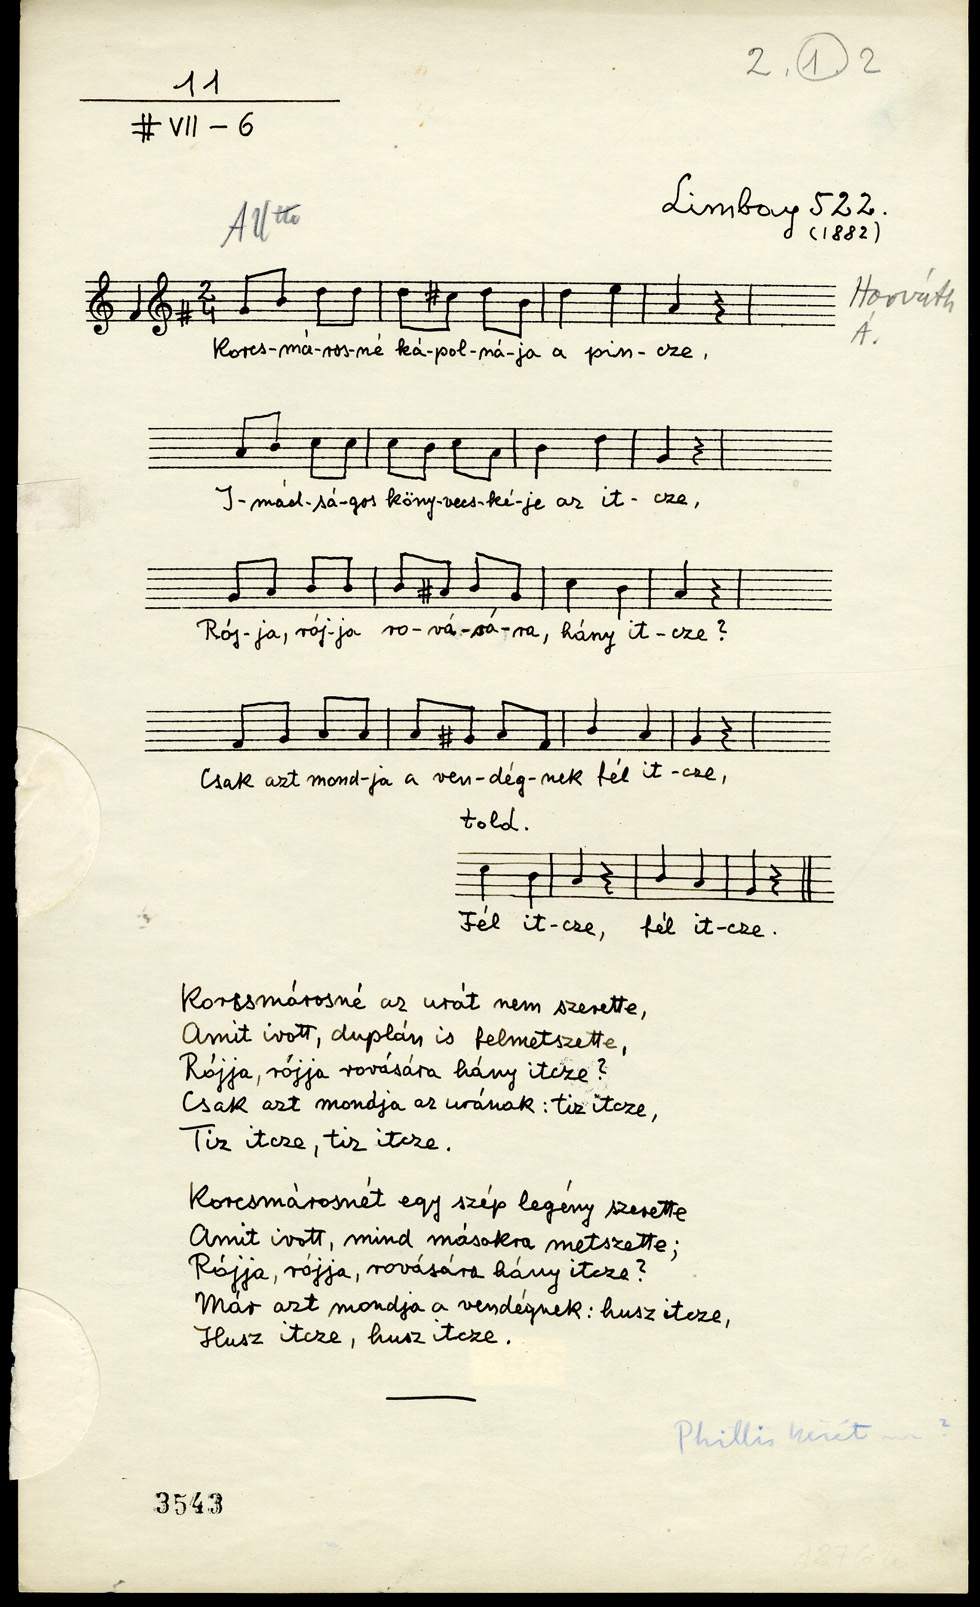 2. 1. 2
11
# VII - 6
Limbay 522.
(1882)
Horváth
Á.
Korcs-má-ros-né ká-pol-ná-ja a pin-cze,
I-mád-sá-gos köny-vecs-ké-je az it-cze,
Rój-ja, rój-ja ro-vá-sá-ra, hány it-cze?
Csak azt mond-ja a ven-dég-nek fél it-cze,
told.
Fél it-cze, fél it-cze.
Korcsmárosné az urát nem szerette,
Amit ivott, duplán is felmetszette,
Rójja, rójja rovására hány itcze?
Csak azt mondja az urának: tiz itcze,
Tiz itcze, tiz itcze.
Korcsmárosnét egy szép legény szerette
Amit ivott, mind másokra metszette;
Rójja, rójja, rovására hány itcze?
Már azt mondja a vendégnek: husz itcze,
Husz itcze, husz itcze.
Phillis ?
3543